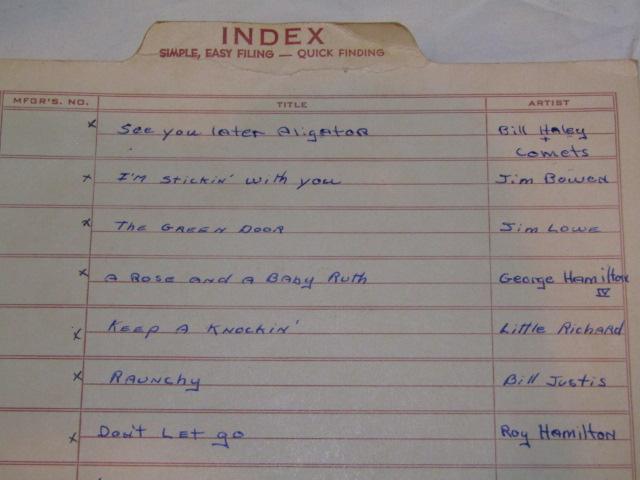 INDEX
SIMPLE, EASY FILING — QUICK FINDING
MFGR'S. NO. TITLE ARTIST
x See you later Aligator Bill Haley
+
Comets
x I'm Stickin' with you Jim Bowen
x The Green Door Jim Lowe
x A Rose and a Baby Ruth George Hamilton
IV
x Keep A Knockin' Little Richard
x Raunchy Bill Justis
x Don't Let go Roy Hamilton